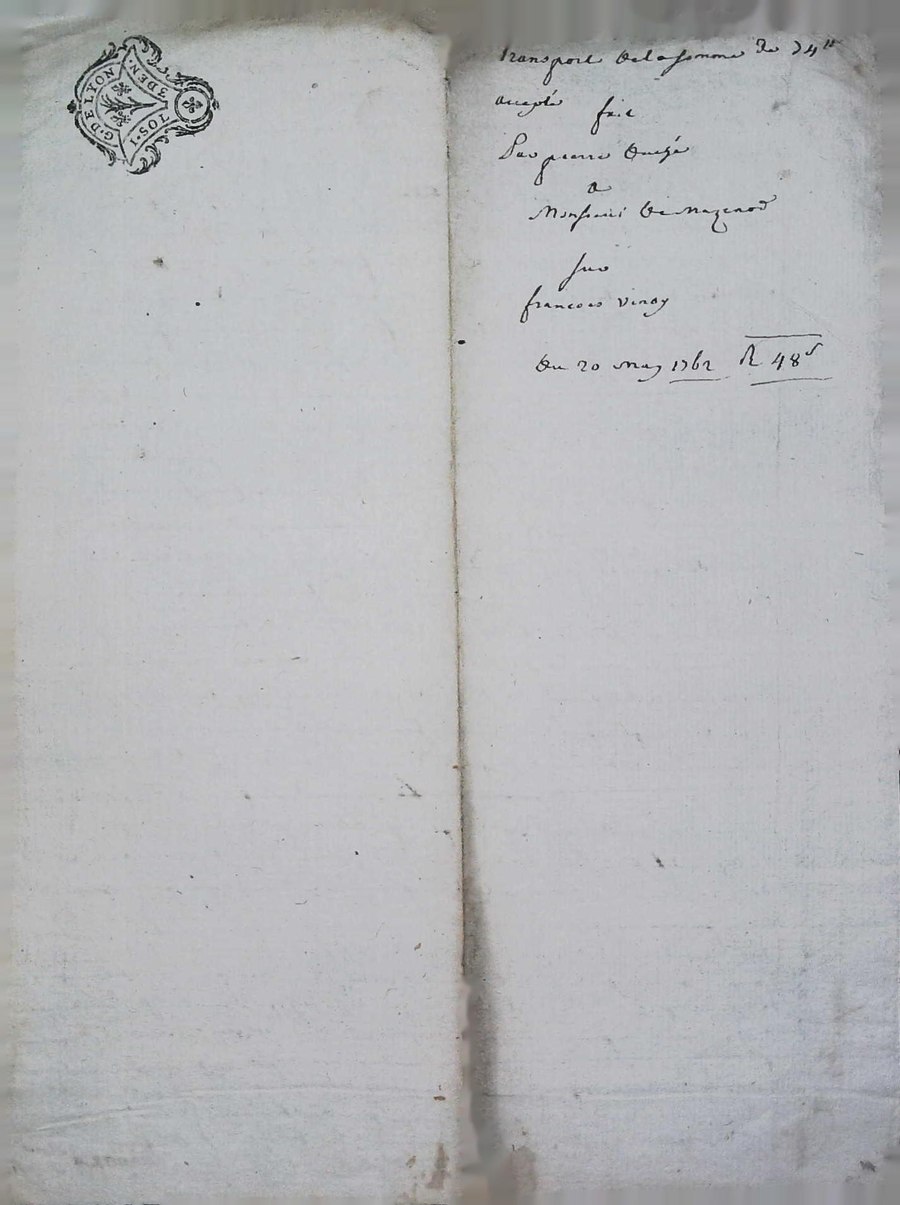 G. DE LYON
1. SOL 3 DEN.
Transport de la somme de 74ᵗᵗ
accepté
fait
Par pierre
a
Monsieur De Mazenod
sur
francois vinay
Du 20 May 1762 R 48ˢ